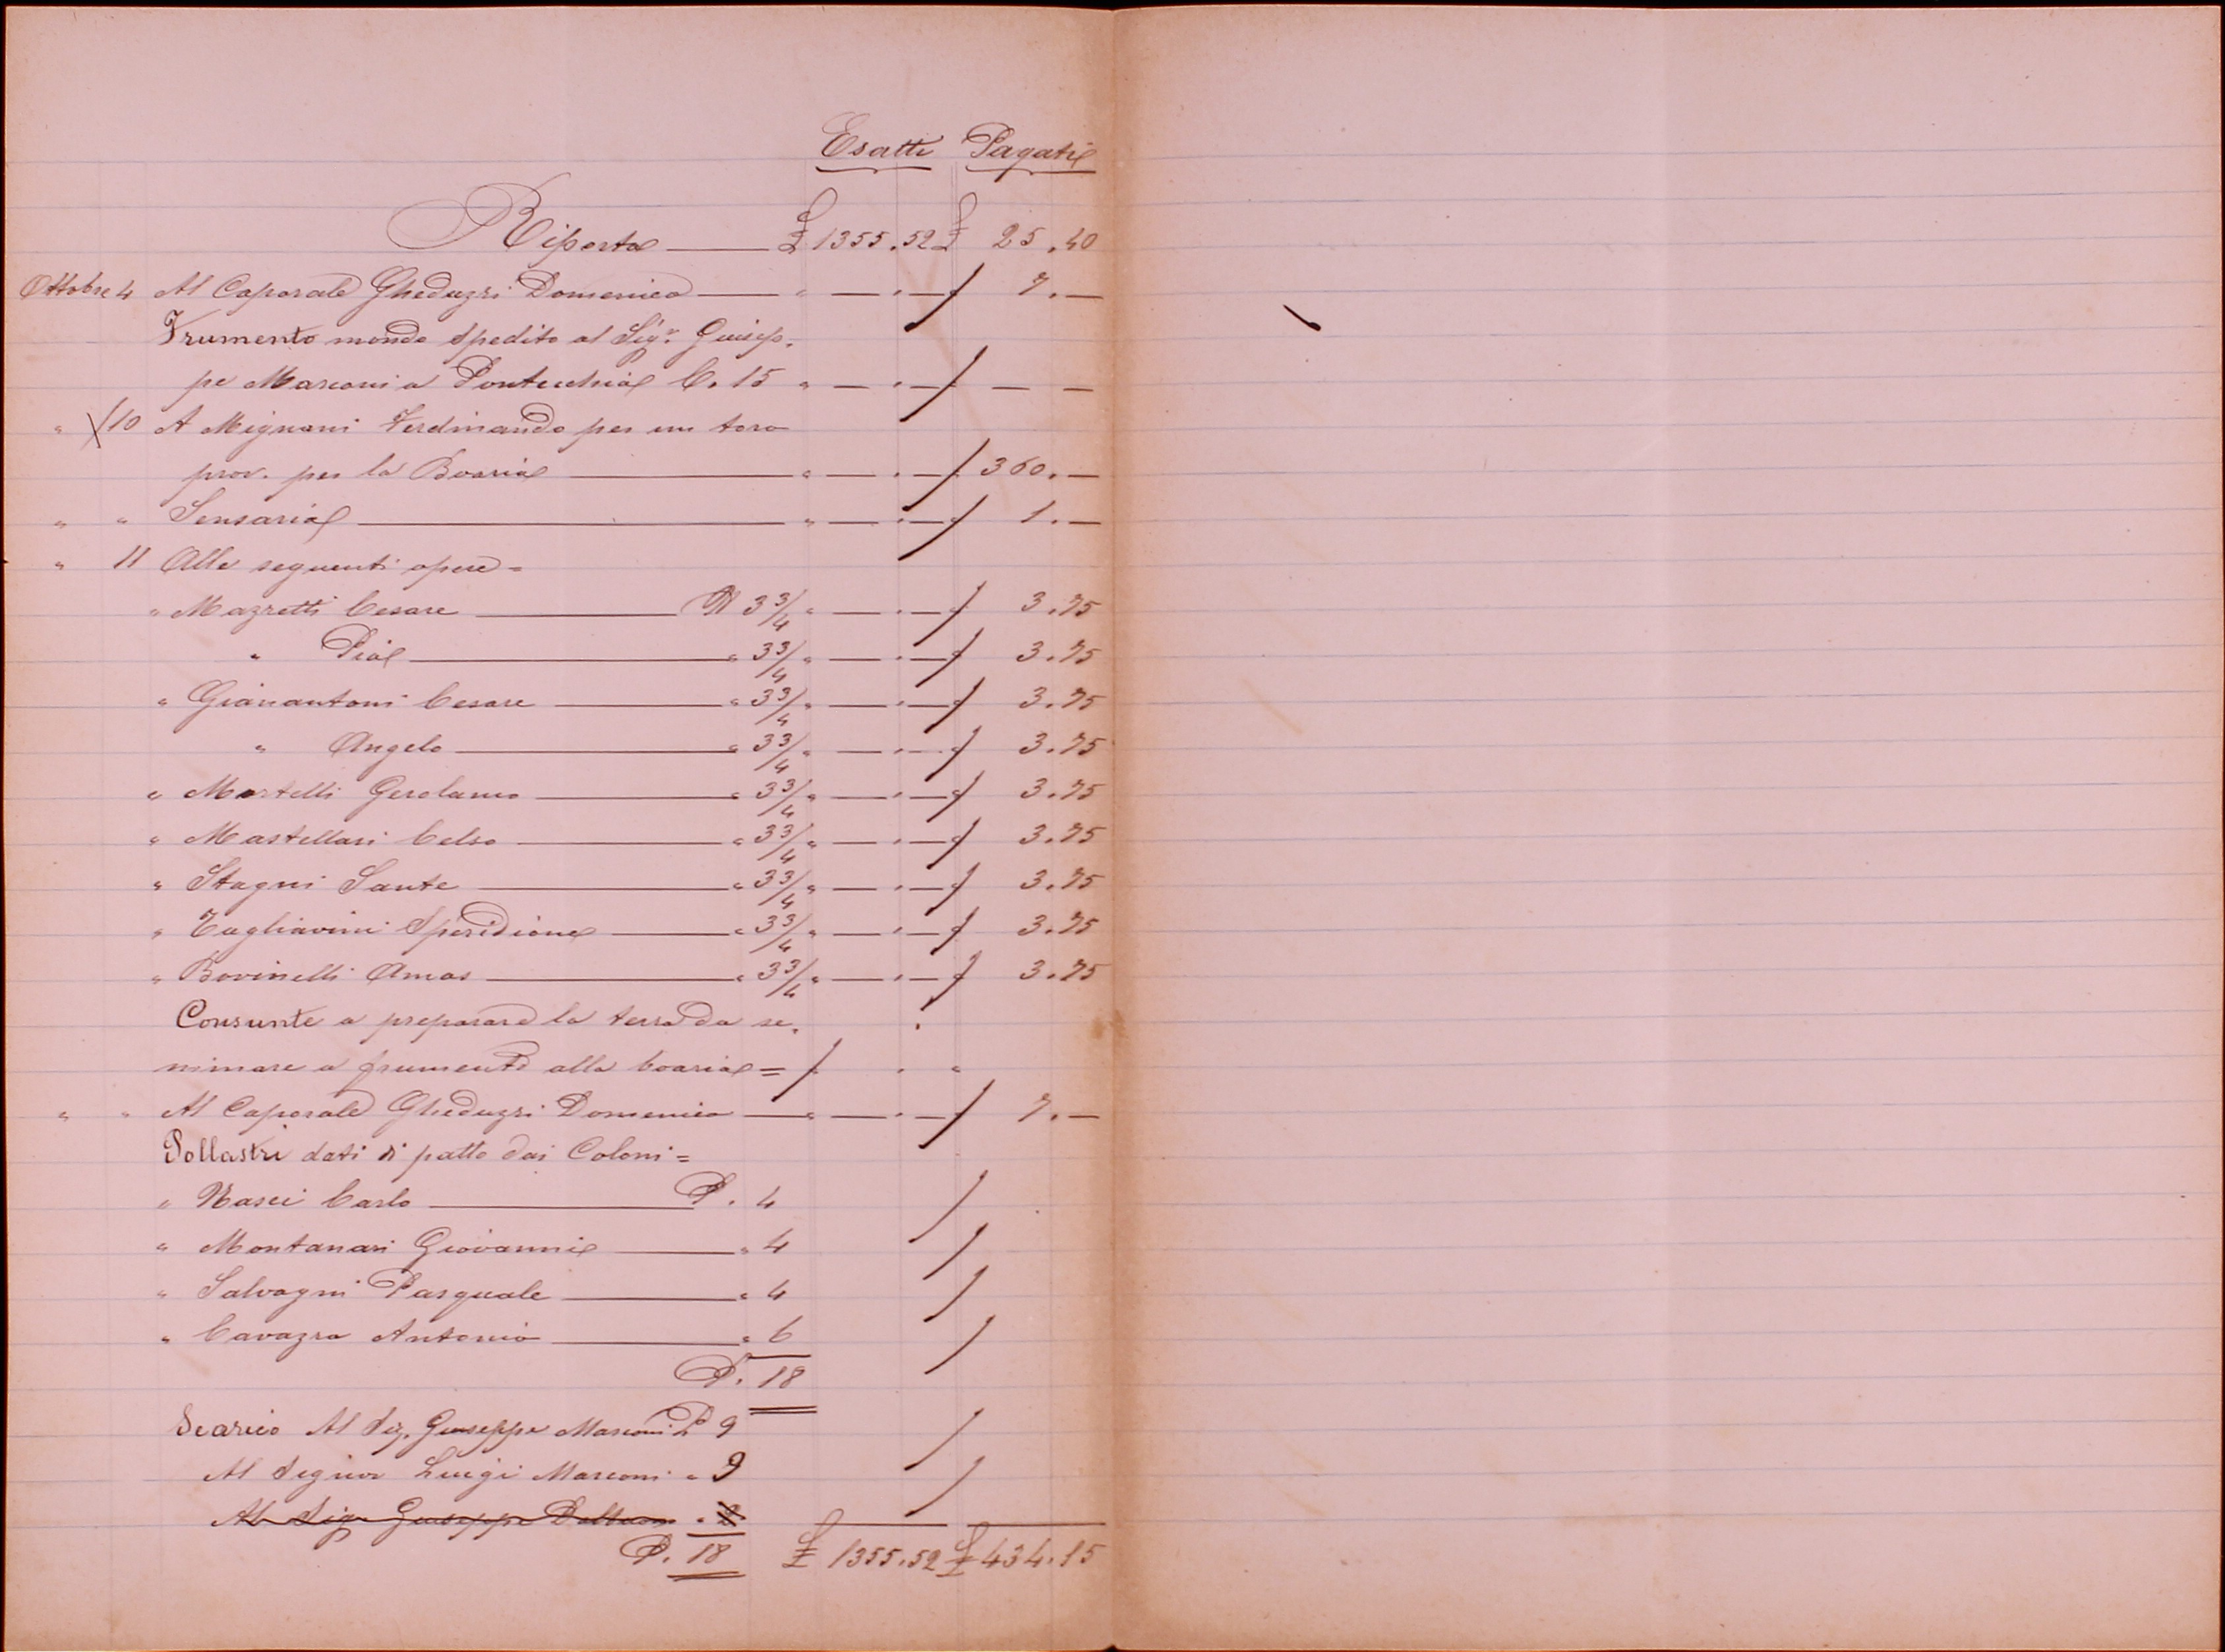 Esatti Pagati
Riporto £ 1355.52 £ 25.40
Ottobre 4 Al Caporale Gheduzzi Domenico " — . — " 7. —
Frumento mondo spedito al Sig.r Giusep-
pe Marconi a Pontecchio C. 15 " — . — " — —
" 10 A Mignani Ferdinando per un toro
prov. per la Boaria " — . — " 360. —
" " Sensaria " — . — " 1. —
" 11 Alle seguenti opere =
" Mazzetti Cesare N 3 3/4 " — . — " 3.75
" Pio " 3 3/4 " — . — " 3.75
" Gianantoni Cesare " 3 3/4 " — . — " 3.75
" Angelo " 3 3/4 " — . — " 3.75
" Martelli Gerolamo " 3 3/4 " — . — " 3.75
" Mastellari Celso " 3 3/4 " — . — " 3.75
" Stagni Sante " 3 3/4 " — . — " 3.75
" Tugliavini Speridione " 3 3/4 " — . — " 3.75
" Bovinelli Amos " 3 3/4 " — . — " 3.75
Consunte a preparare la terra da se-
minare a frumento alla boaria =
" " Al Caporale Gheduzzi Domenico " — . — " 7. —
Pollastri dati di patto dai Coloni =
" Nasci Carlo P. 4
" Montanari Giovanni " 4
" Salvagni Pasquale " 4
" Cavazza Antonio " 6
P. 18
Scarico Al Sig. Giuseppe Marconi P 9
Al Signor Luigi Marconi " 9
Al Sig. Giuseppe
P. 18 £ 1355.52 £ 434.15